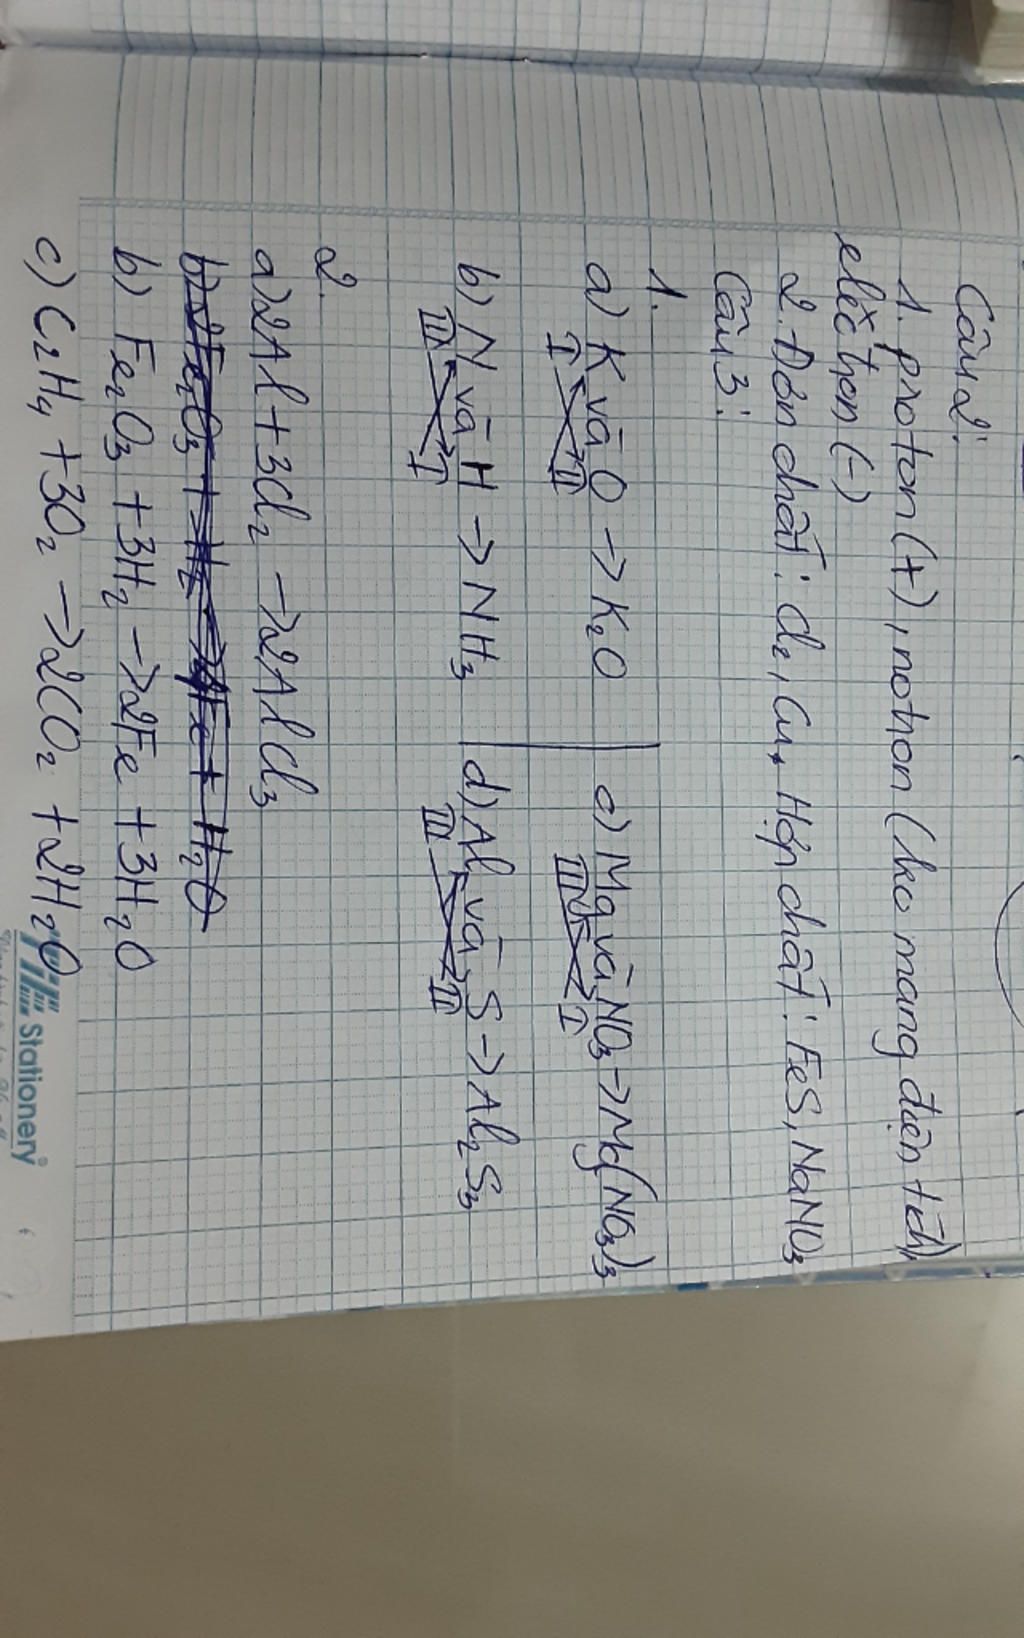 Câu 2:
1. proton (+), notron (ko mang điện tích)
electron (-)
2. Đơn chất: Cl₂, Cu, Hợp chất: FeS, NaNO₃
Câu 3:
1.
a) K và O → K₂O
I II
c) Mg và NO₃ → Mg(NO₃)₃
III I
b) N và H → NH₃
III I
d) Al và S → Al₂S₃
III II
2.
a) 2Al + 3Cl₂ → 2AlCl₃
b) Fe₂O₃ + 3H₂ → 2Fe + 3H₂O
c) C₂H₄ + 3O₂ → 2CO₂ + 2H₂O
Stationery